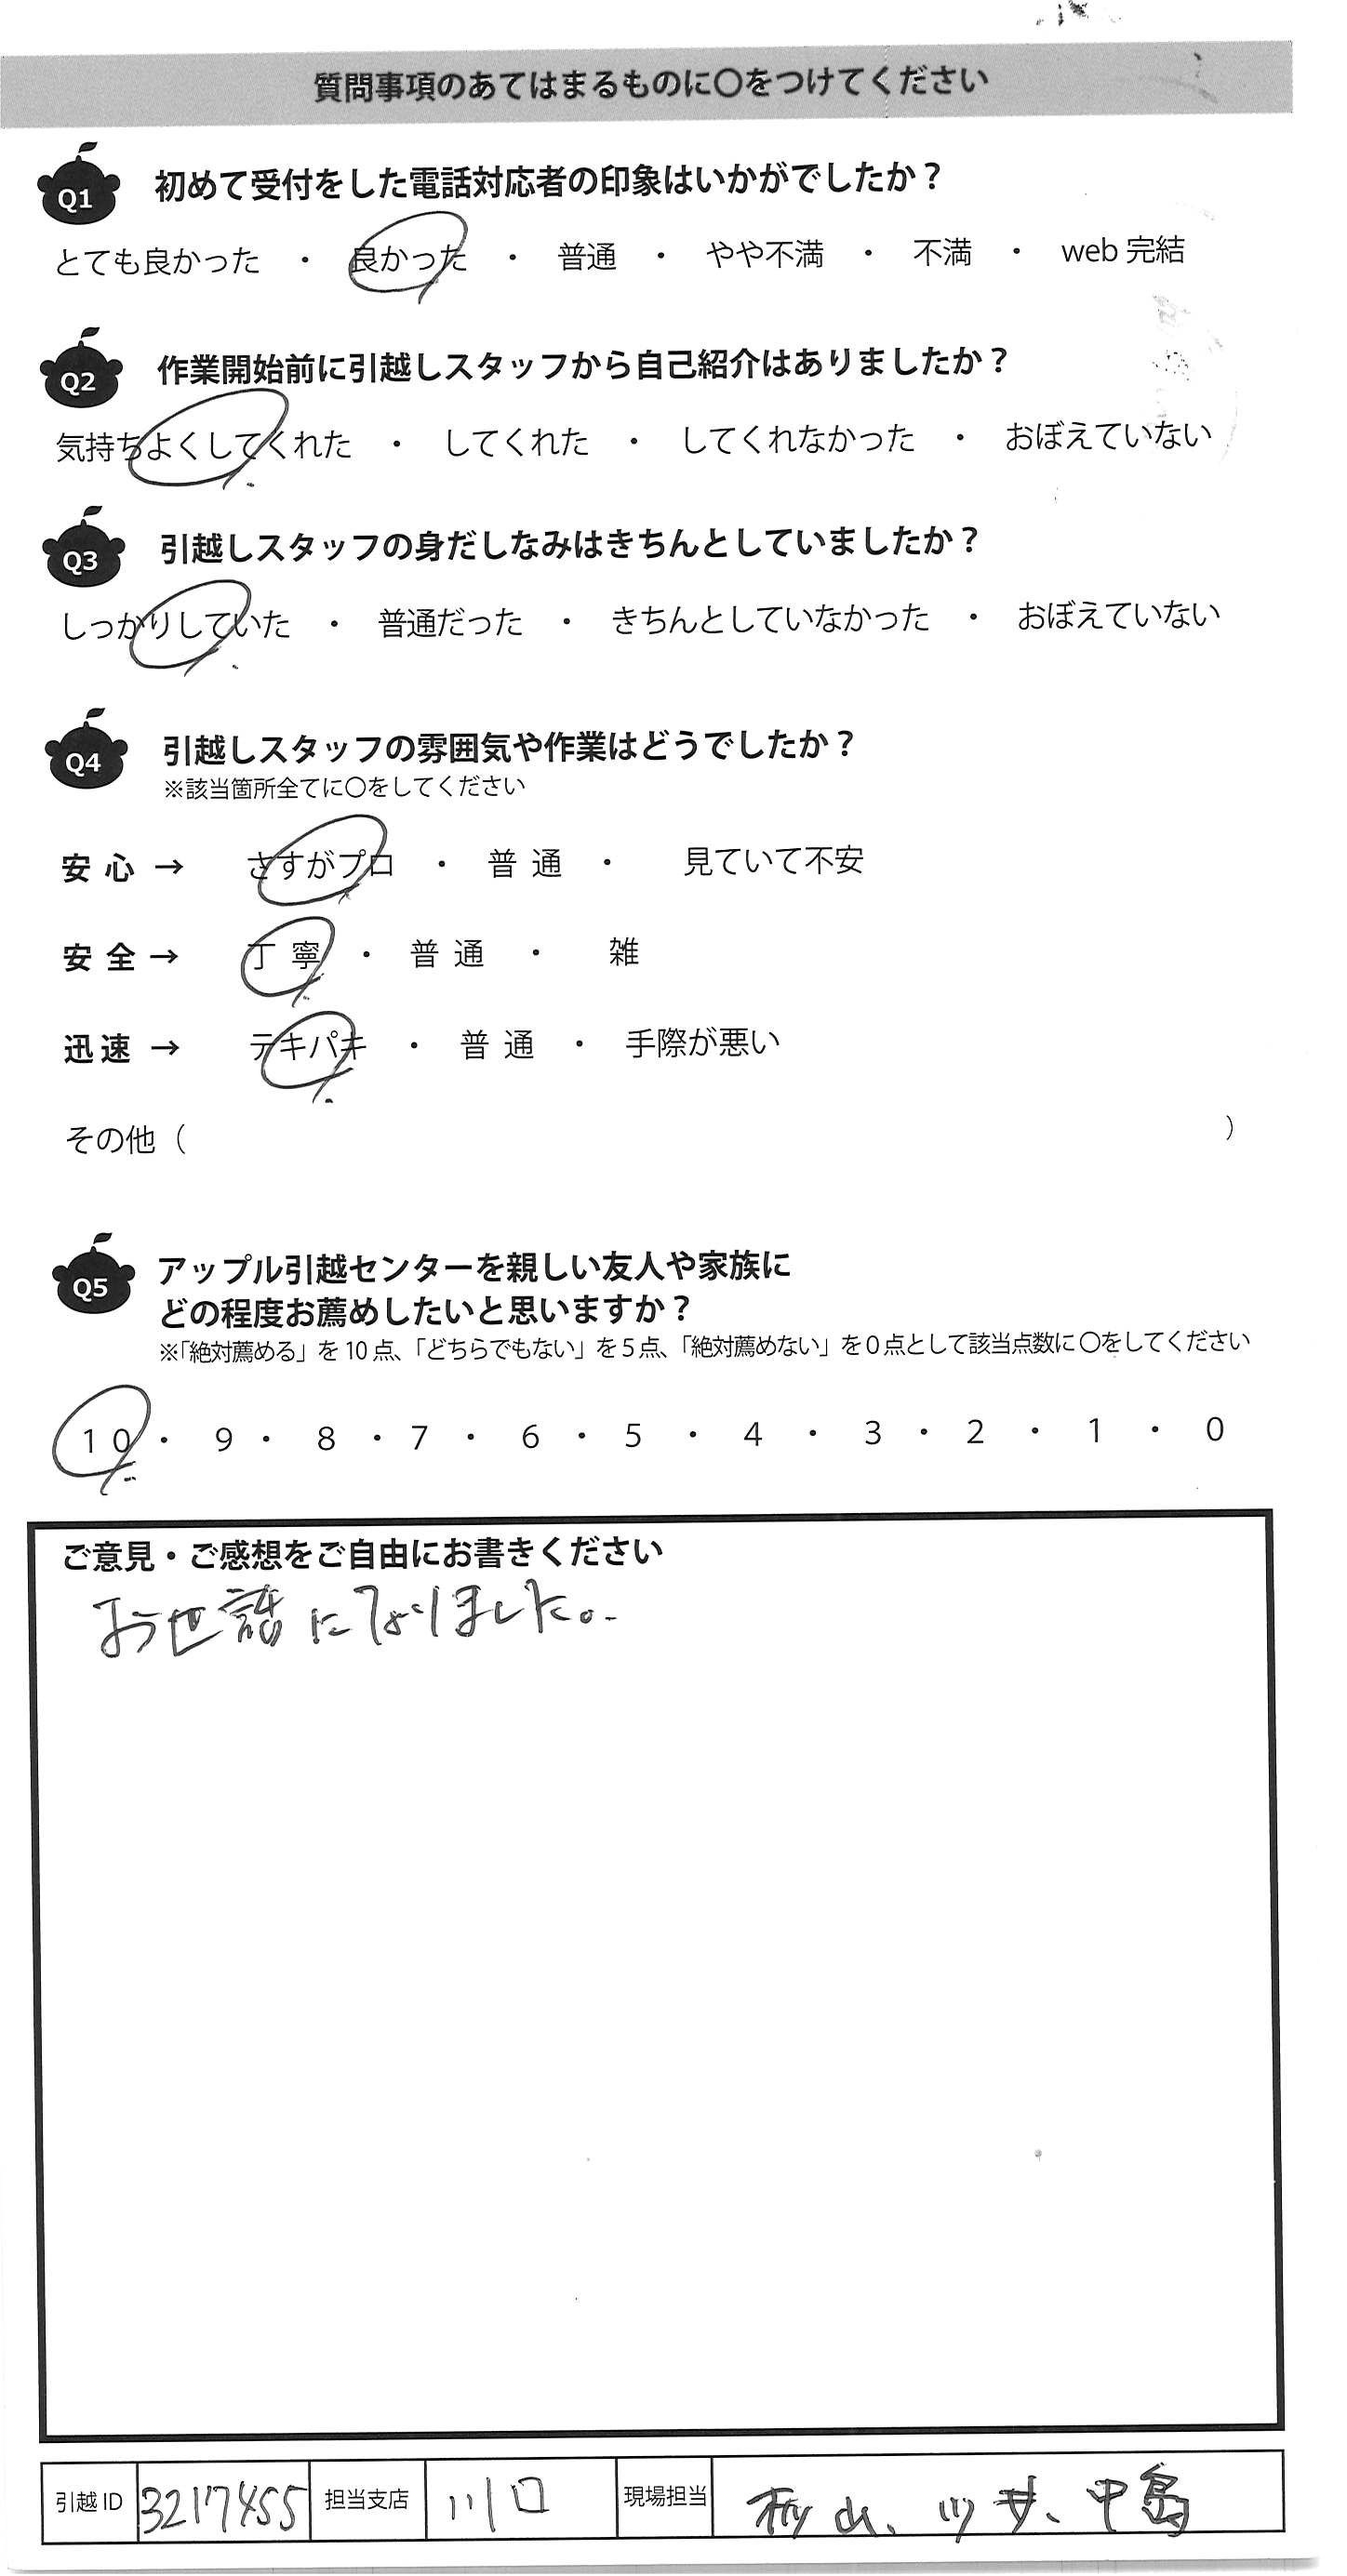 質問事項のあてはまるものに〇をつけてください
Q1 初めて受付をした電話対応者の印象はいかがでしたか？
とても良かった ・ 良かった ・ 普通 ・ やや不満 ・ 不満 ・ web 完結
Q2 作業開始前に引越しスタッフから自己紹介はありましたか？
気持ちよくしてくれた ・ してくれた ・ してくれなかった ・ おぼえていない
Q3 引越しスタッフの身だしなみはきちんとしていましたか？
しっかりしていた ・ 普通だった ・ きちんとしていなかった ・ おぼえていない
Q4 引越しスタッフの雰囲気や作業はどうでしたか？
※該当箇所全てに〇をしてください
安心 → さすがプロ ・ 普通 ・ 見ていて不安
安全 → 丁寧 ・ 普通 ・ 雑
迅速 → テキパキ ・ 普通 ・ 手際が悪い
その他（ ）
Q5 アップル引越センターを親しい友人や家族に
どの程度お薦めしたいと思いますか？
※「絶対薦める」を 10 点、「どちらでもない」を 5 点、「絶対薦めない」を 0 点として該当点数に〇をしてください
10 ・ 9 ・ 8 ・ 7 ・ 6 ・ 5 ・ 4 ・ 3 ・ 2 ・ 1 ・ 0
ご意見・ご感想をご自由にお書きください
お世話になりました。
引越 ID 3217455 担当支店 川口 現場担当 中島